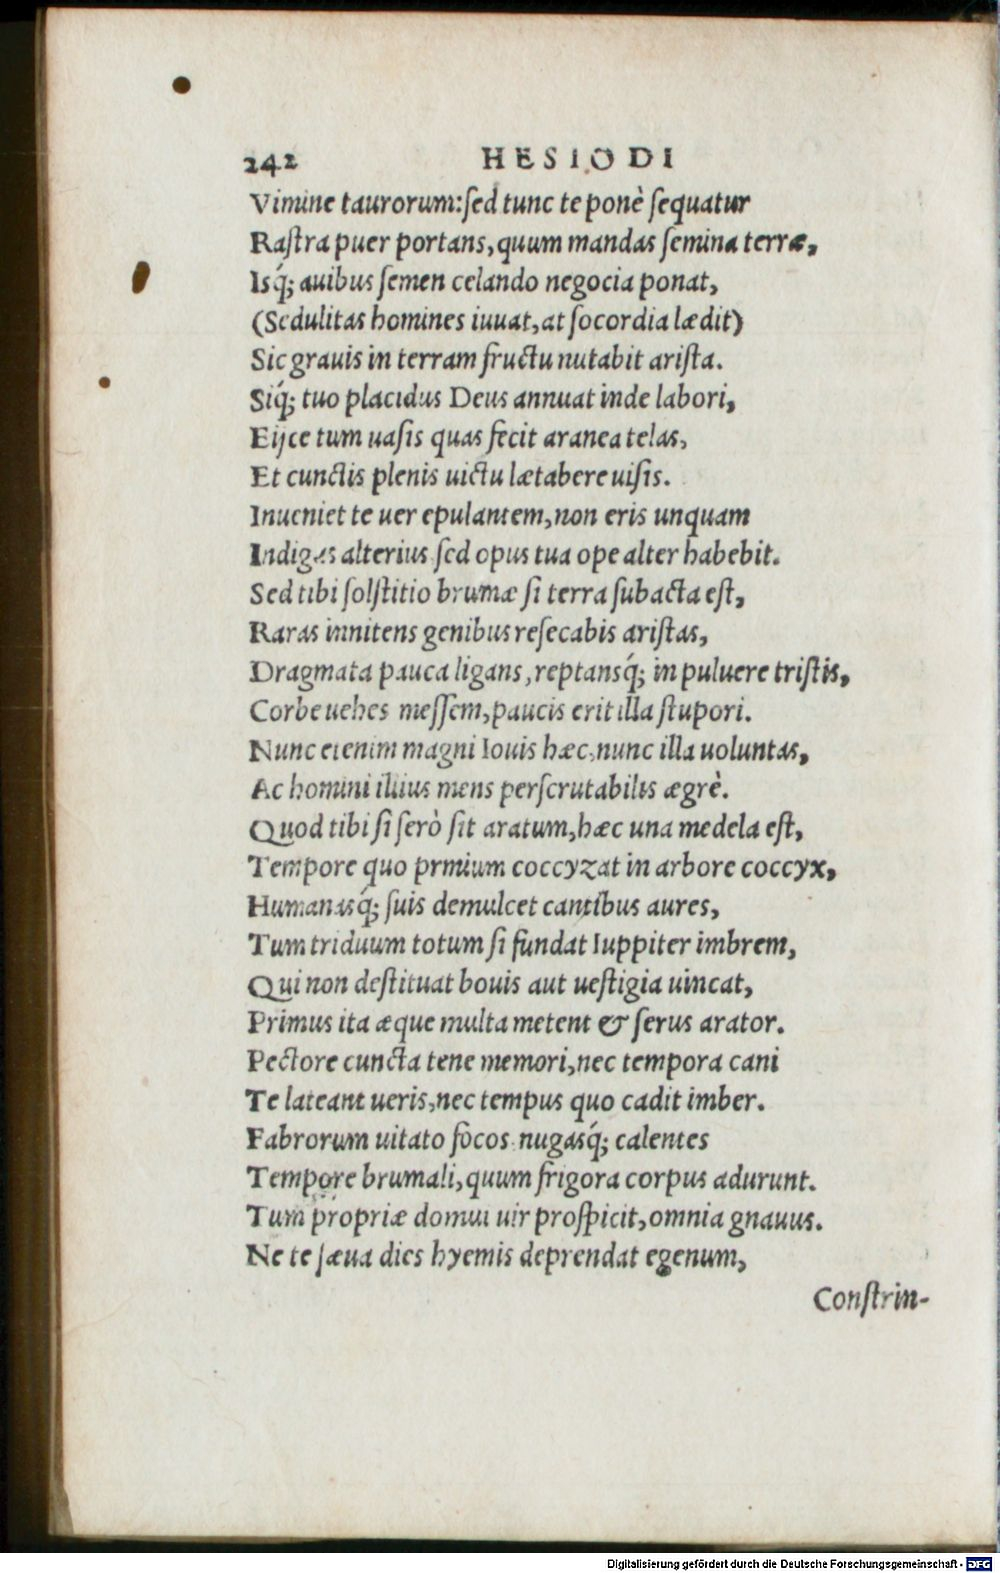 242 HESIODI
Vimine taurorum: sed tunc te ponè sequatur
Rastra puer portans, quum mandas semina terræ,
Isq́; auibus semen celando negocia ponat,
(Sedulitas homines iuuat, at socordia lædit)
Sic grauis in terram fructu nutabit arista.
Siq́; tuo placidus Deus annuat inde labori,
Eijce tum uasis quas fecit aranea telas,
Et cunctis plenis uictu lætabere uisis.
Inueniet te uer epulantem, non eris unquam
Indigus alterius sed opus tua ope alter habebit.
Sed tibi solstitio brumæ si terra subacta est,
Raras innitens genibus resecabis aristas,
Dragmata pauca ligans, reptansq́; in puluere tristis,
Corbe uehes messem, paucis erit illa stupori.
Nunc etenim magni Iouis hæc, nunc illa uoluntas,
Ac homini illius mens perscrutabilis ægrè.
Quod tibi si serò sit aratum, hæc una medela est,
Tempore quo prmium coccyzat in arbore coccyx,
Humanasq́; suis demulcet cantibus aures,
Tum triduum totum si fundat Iuppiter imbrem,
Qui non destituat bouis aut uestigia uincat,
Primus ita æque multa metent & serus arator.
Pectore cuncta tene memori, nec tempora cani
Te lateant ueris, nec tempus quo cadit imber.
Fabrorum uitato focos nugasq́; calentes
Tempore brumali, quum frigora corpus adurunt.
Tum propriæ domui uir prospicit, omnia gnauus.
Ne te sæua dies hyemis deprendat egenum,
Constrin-
Digitalisierung gefördert durch die Deutsche Forschungsgemeinschaft - DFG